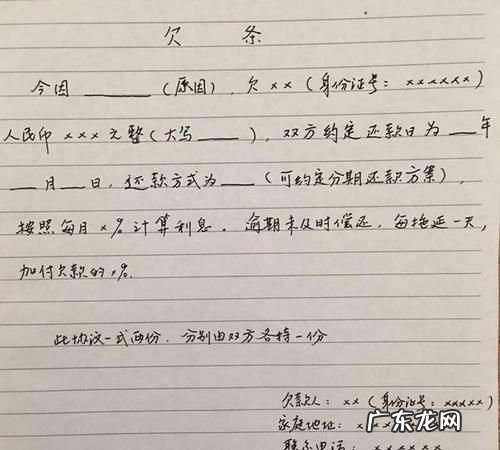 欠 条
今因____(原因),欠××(身份证号:××××××)
人民币×××元整(大写___),双方约定还款日为__年
__月__日,还款方式为___(可约定分期还款方案),
按照每月×%计算利息。逾期未及时偿还,每拖延一天,
加付欠款的×%.
此协议一式两份,分别由双方各持一份
欠款人:××(身份证号:×××××)
家庭地址:×
联系电话:××××××
广东龙网